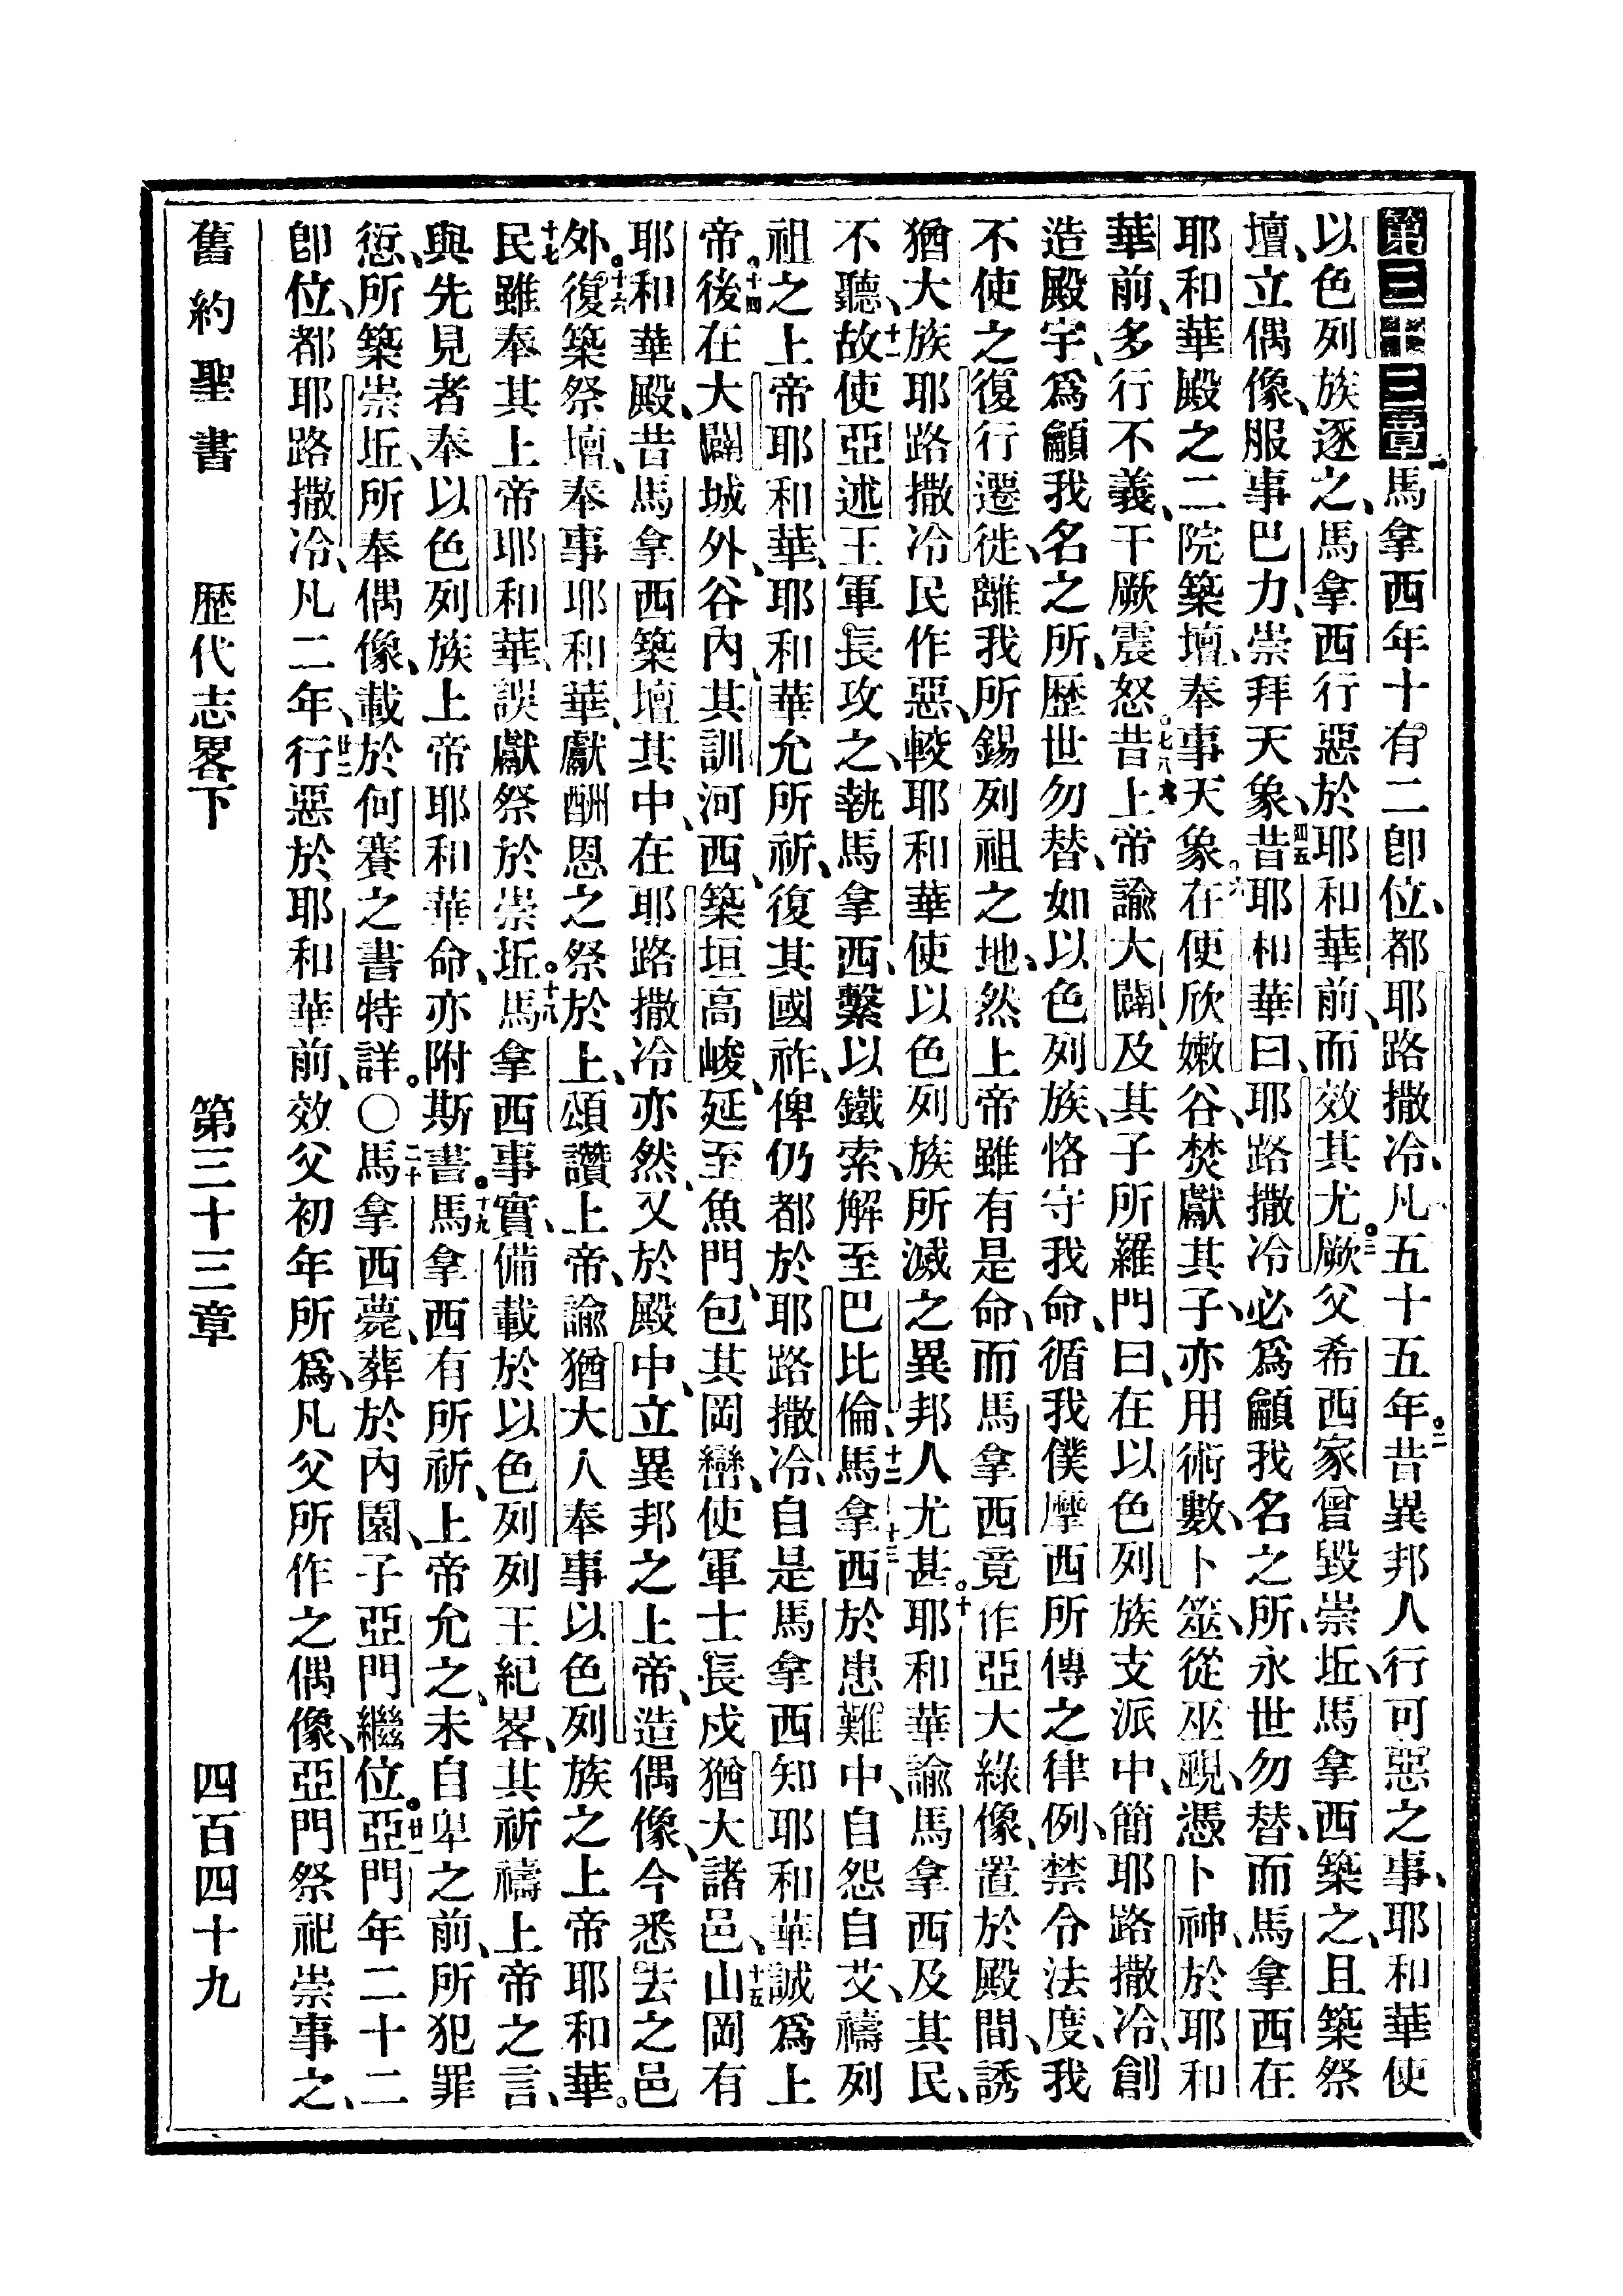 第三十三章一馬拿西年十有二卽位、都耶路撒冷、凡五十五年。二昔異邦人行可惡之事、耶和華使
以色列族逐之、馬拿西行惡於耶和華前、而效其尤。三厥父希西家曾毀崇坵、馬拿西築之、且築祭
壇、立偶像、服事巴力、崇拜天象、四五昔耶和華曰、耶路撒冷必爲籲我名之所、永世勿替、而馬拿西在
耶和華殿之二院築壇、奉事天象。六在便欣嫩谷、焚獻其子、亦用術數、卜筮、從巫覡、憑卜神、於耶和
華前、多行不義、干厥震怒。七八昔上帝諭大闢、及其子所羅門曰、在以色列族支派中、簡耶路撒冷、創
造殿宇、爲籲我名之所、歷世勿替、如以色列族、恪守我命、循我僕摩西所傳之律例、禁令法度、我
不使之復行遷徙、離我所錫列祖之地、然上帝雖有是命、而馬拿西竟作亞大綠像、置於殿間、誘
猶大族耶路撒冷民作惡、較耶和華使以色列族所滅之異邦人尤甚。十耶和華諭馬拿西及其民、
不聽、十一故使亞述王軍長攻之、執馬拿西、繫以鐵索、解至巴比倫、十二馬拿西十三於患難中、自怨自艾、禱列
祖之上帝耶和華、耶和華允所祈、復其國祚、俾仍都於耶路撒冷、自是馬拿西知耶和華誠爲上
帝。十四後在大闢城外、谷內、其訓河西、築垣高峻、延至魚門、包其岡巒、使軍士長戍猶大諸邑、十五山岡有
耶和華殿、昔馬拿西築壇其中、在耶路撒冷、亦然、又於殿中、立異邦之上帝、造偶像、今悉去之邑
外。十六復築祭壇、奉事耶和華、獻酬恩之祭於上、頌讚上帝、諭猶大人奉事以色列族之上帝耶和華。
十七民雖奉其上帝耶和華、誤獻祭於崇坵。十八馬拿西事實、備載於以色列列王紀畧、其祈禱上帝之言、
與先見者奉、以色列族上帝耶和華命、亦附斯書。十九馬拿西有所祈、上帝允之、未自卑之前、所犯罪
愆、所築崇坵、所奉偶像、載於何賽之書特詳。〇二十馬拿西薨、葬於內園、子亞門繼位。廿一亞門年二十二
卽位、都耶路撒冷、凡二年、廿二行惡於耶和華前、效父初年所爲、凡父所作之偶像、亞門祭祀崇事之、
舊約聖書　歷代志畧下　第三十三章　四百四十九